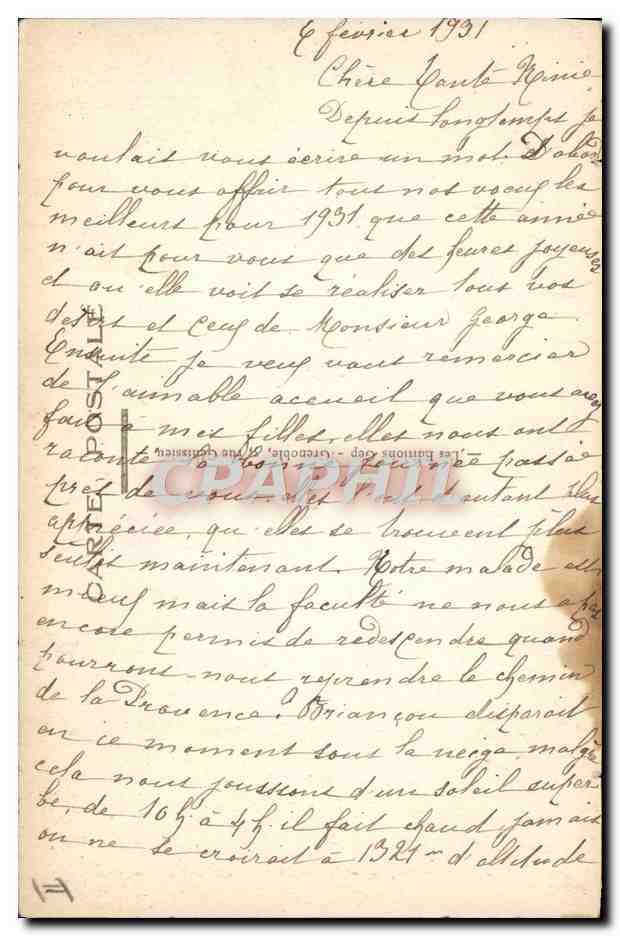 6 février 1931
Chère Tante Ninie
Depuis longtemps je
voulait vous écrire un mot. D'abord
pour vous offrir tous nos voeux les
meilleurs pour 1931 que cette année
n'ait pour vous que des heures joyeuses
et qu'elle voit se réaliser tous vos
désirs et ceux de Monsieur George
Ensuite je veux vous remercier
de l'aimable accueil que vous avez
fait à mes filles, elles nous ont
raconté la bonne journée passée
près de vous elles l'ont d'autant plus
appréciée, qu'elles se trouvent plus
seules maintenant. Notre malade est
mieux mais la faculté ne nous a pas
encore permis de redescendre quand
pourrons-nous reprendre le chemin
de la Provence. Briançon disparait
en ce moment sous la neige malgré
cela nous jouissons d'un soleil super
be, de 10h à 4h il fait chaud, jamais
on ne se croirait à 1321m d'altitude
CARTE POSTALE
Les Editions Gep - Grenoble, 8, Rue Génissieu
CPARHIL